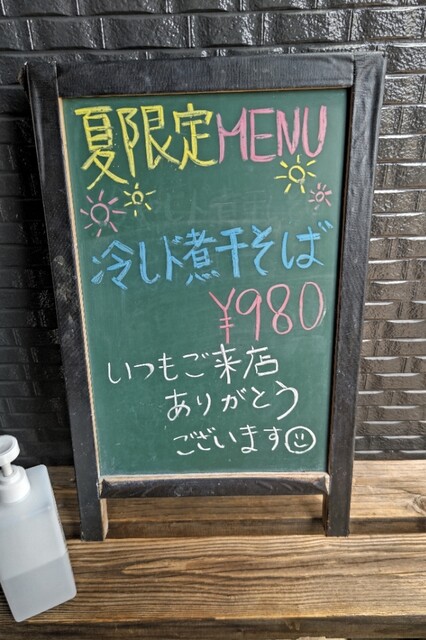 夏限定MENU
冷しド煮干そば
¥980
いつもご来店
ありがとう
ございます